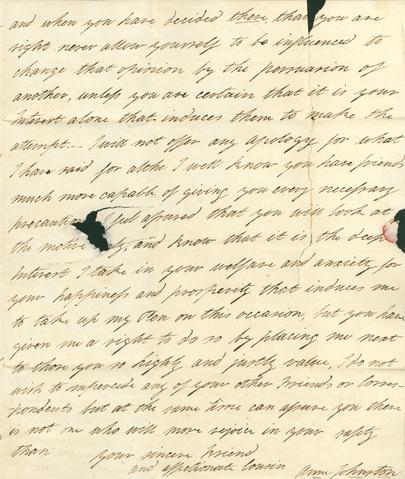 and when you have decided there that you are
right never allow yourself to be influenced to
change that opinion by the persuasion of
another, unless you are certain that it is your
Interest alone that induces them to make the
attempt -- I will not offer any apology for what
I have said for altho I well know you have friends
much more capable of giving you every necessary
precaution I feel assured that you will look at
the motive only, and know that it is the deep
Interest I take in your welfare and anxiety for
your happiness and prosperity that induces me
to take up my Pen on this occasion, but you have
given me a right to do so by placing me next
to those you so highly and justly value, I do not
wish to supercide any of your other Friends or Corres-
pondents but at the same time can assure you there
is not one who will more rejoice in your safety
than your sincere friend
and affectionate Cousin Anne Johnston